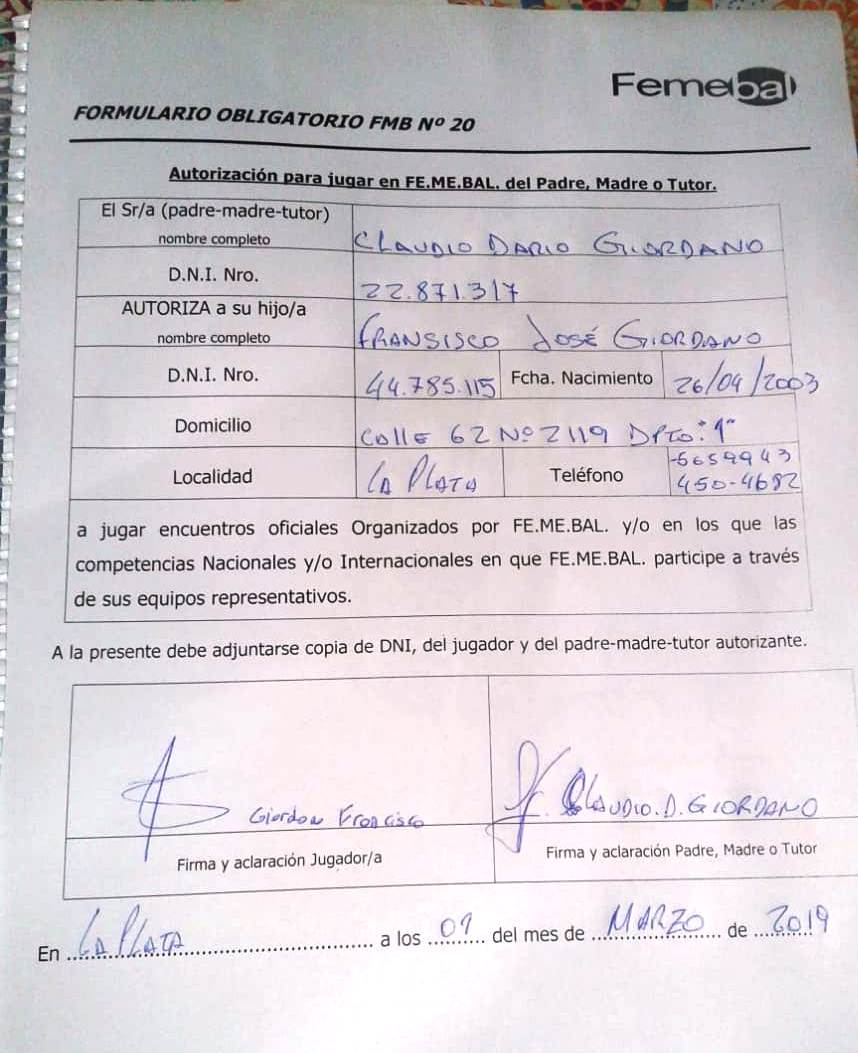 Femebal
FORMULARIO OBLIGATORIO FMB Nº 20
Autorización para jugar en FE.ME.BAL. del Padre, Madre o Tutor.
El Sr/a (padre-madre-tutor)
nombre completo
CLAUDIO DARIO GIORDANO
D.N.I. Nro.
22.871.317
AUTORIZA a su hijo/a
nombre completo
FRANSISCO JOSÉ GIORDANO
D.N.I. Nro.
44.785.115
Fcha. Nacimiento
26/04/2003
Domicilio
Calle 62 Nº 2119 DPTO: 1"
Localidad
LA PLATA
Teléfono
-5659943
450-4682
a jugar encuentros oficiales Organizados por FE.ME.BAL. y/o en los que las
competencias Nacionales y/o Internacionales en que FE.ME.BAL. participe a través
de sus equipos representativos.
A la presente debe adjuntarse copia de DNI, del jugador y del padre-madre-tutor autorizante.
Francisco
CLAUDIO.D.GIORDANO
Firma y aclaración Jugador/a
Firma y aclaración Padre, Madre o Tutor
En LA PLATA a los del mes de MARZO de 2019